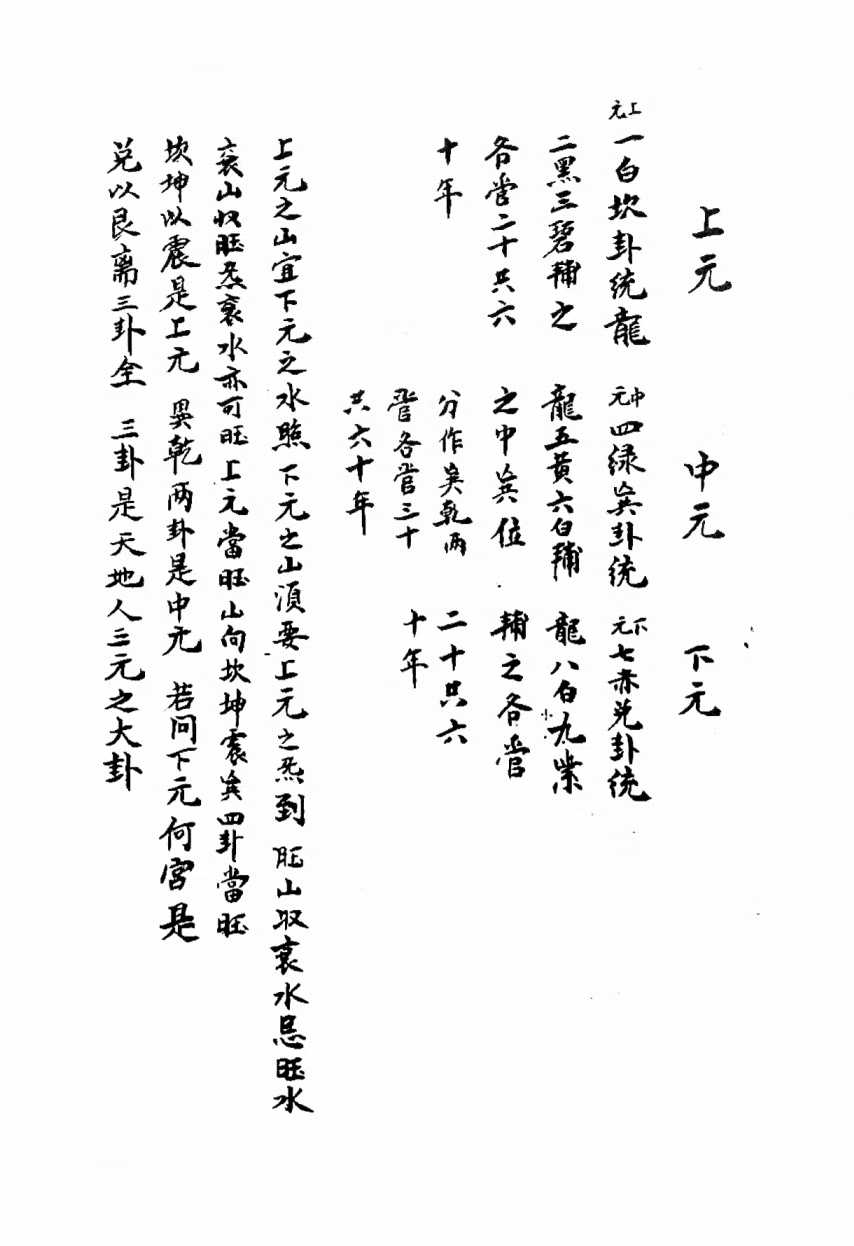 上元
上元一白坎卦統龍
二黑三碧輔之
各管二十共六
十年
中元
中元四緑巽卦統
龍五黄六白輔
之中巽位
分作巽乾兩
管各管三十
共六十年
下元
下元七赤兑卦統
龍八白九紫
輔之各管
二十共六
十年
上元之山宜下元之水照下元之山須要上元之炁到 旺山取衰水忌旺水
衰山收旺炁衰水亦可旺上元當旺山向坎坤震巽四卦當旺
坎坤以震是上元 巽乾两卦是中元 若问下元何宮是
兑以艮离三卦全 三卦是天地人三元之大卦